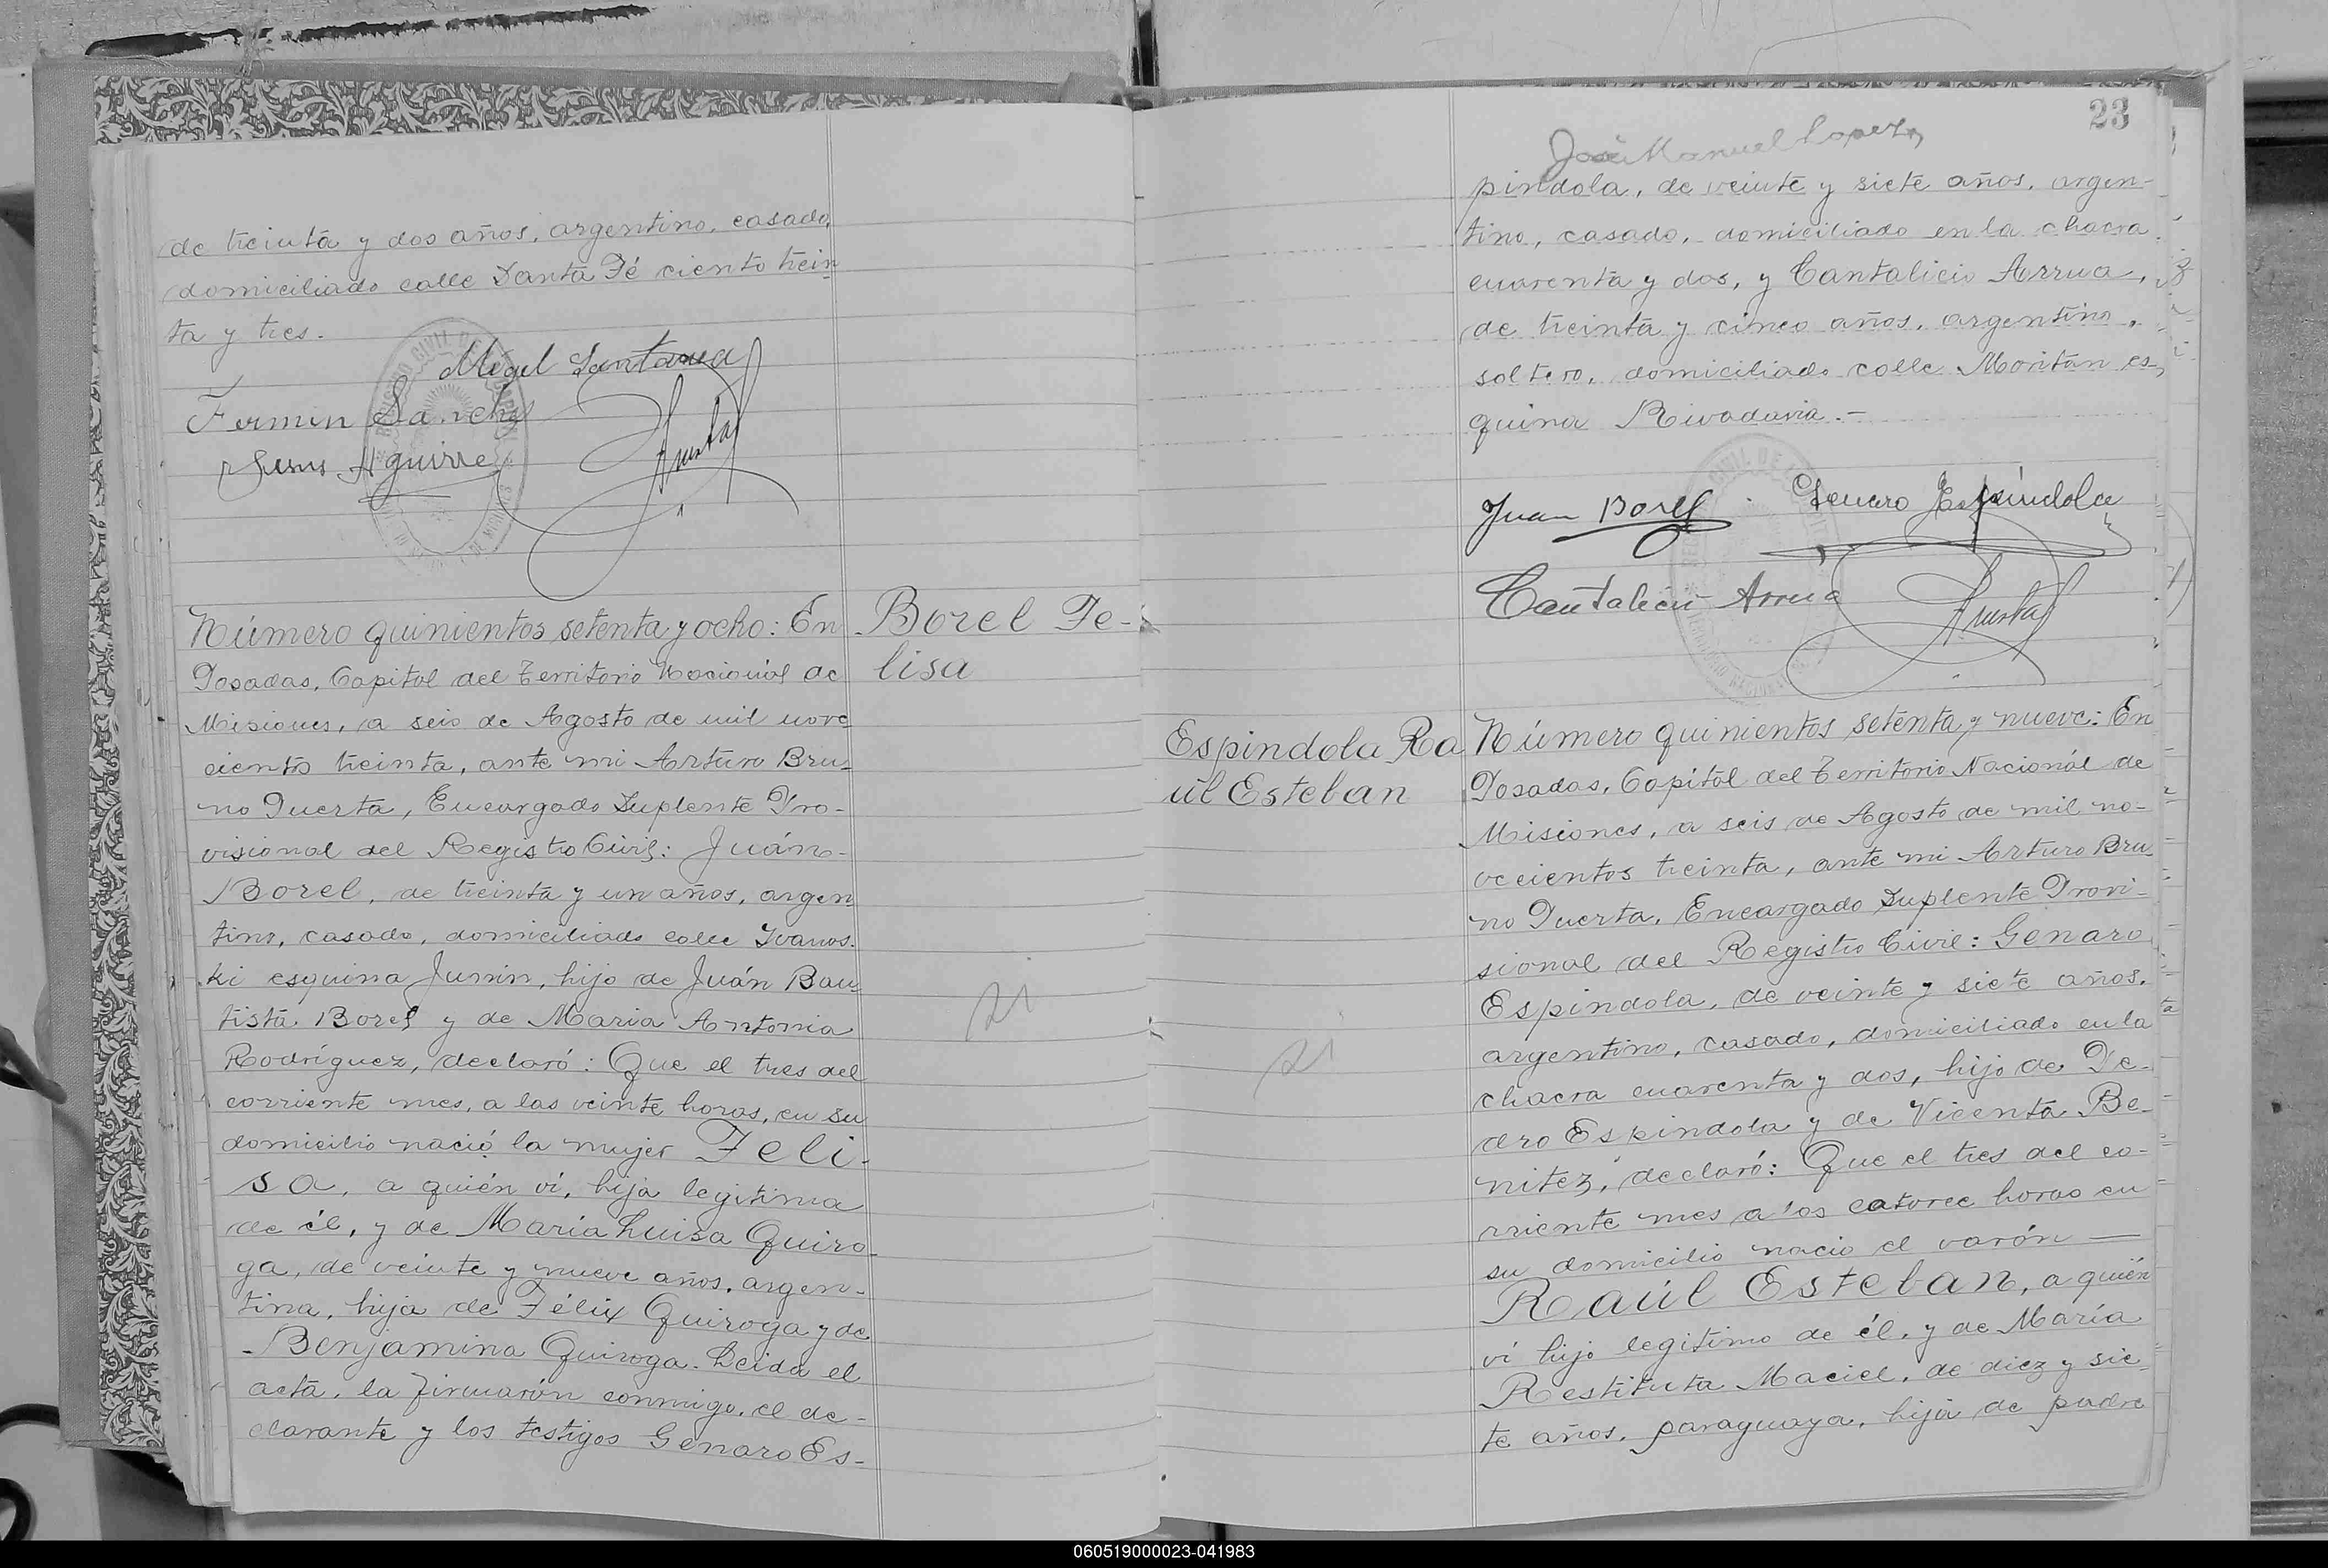 de treinta y dos años, argentino, casado,
domiciliado calle Santa Fé ciento trein
ta y tres.
Migel Santana
Fermin Sanchez
Jesus Aguirre
Número quinientos setenta y ocho: En
Posadas, Capitál del Territorio Nacionál de
Misiones, a seis de Agosto de mil nove
cientos treinta, ante mi Arturo Bru-
no Puerta, Encargado Suplente Pro-
visional del Registro Civil: Juán
Borel, de treinta y un años, argen
tino, casado, domiciliado calle Ivanos-
ki esquina Junin, hijo de Juán Bau-
tista Borel y de Maria Antonia
Rodríguez, declaró: Que el tres del
corriente mes, a las veinte horas, en su
domicilio nació la mujer Feli-
sa, a quién ví, hija legitima
de él, y de María Luisa Quiro-
ga, de veinte y nueve años, argen-
tina, hija de Félix Quiroga y de
Benjamina Quiroga. Leida el
acta, la firmarón conmigo, el de-
clarante y los testigos Genaro Es-
Borel Fe-
lisa
21
23
José Manuel Lopez
pindola, de veinte y siete años, argen-
tino, casado, domiciliado en la chacra
cuarenta y dos, y Cantalicio Arrua,
de treinta y cinco años, argentino,
soltero, domiciliado calle Moritan es-
quina Rivadavia.-
Juan Borel
Genaro Espindola
Cantalicio Arrua
Espindola Ra
úl Esteban
21
Número quinientos setenta y nueve: En
Posadas, Capitál del Territorio Nacionál de
Misiones, a seis de Agosto de mil no-
vecientos treinta, ante mi Arturo Bru-
no Puerta, Encargado Suplente Provi-
sional del Registro Civil: Genaro
Espindola, de veinte y siete años,
argentino, casado, domiciliado en la
chacra cuarenta y dos, hijo de Pe-
dro Espindola y de Vicenta Be-
nitez, declaró: Que el tres del co-
rriente mes a las catorce horas en
su domicilio nacio el varón —
Raúl Esteban, a quién
ví hijo legitimo de él, y de María
Restituta Maciel, de diez y sie-
te años, paraguaya, hija de padre
060519000023-041983